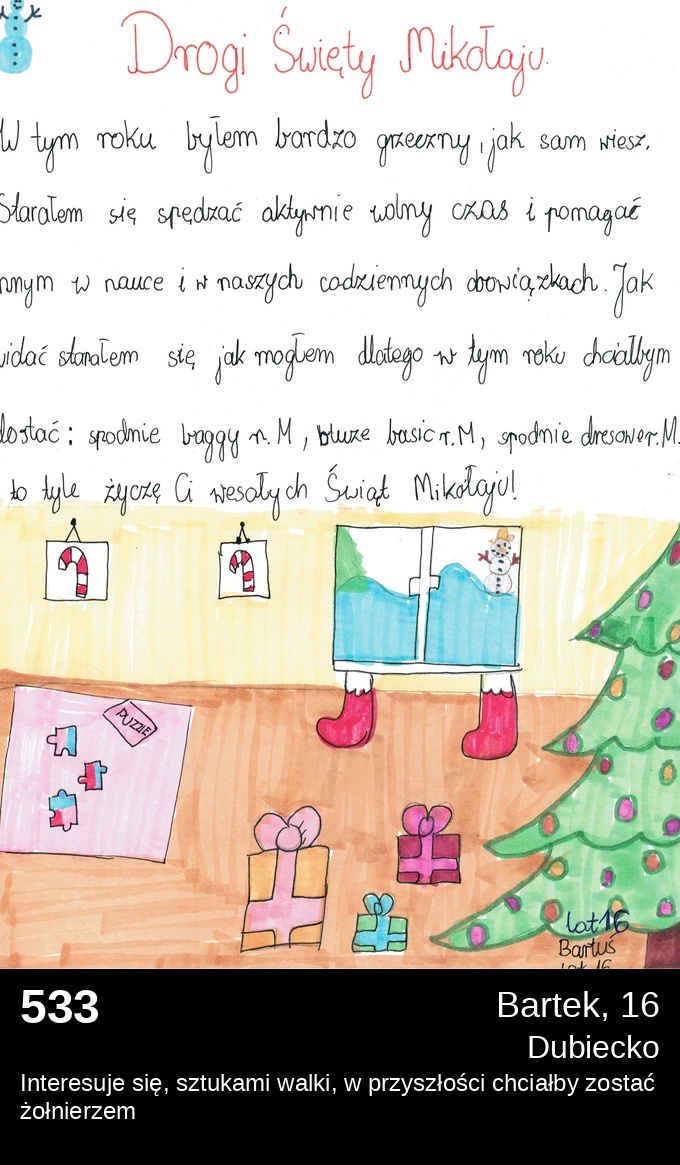 Drogi Święty Mikołaju.
W tym roku byłem bardzo grzeczny, jak sam wiesz.
Starałem się spędzać aktywnie wolny czas i pomagać
nnym w nauce i w naszych codziennych obowiązkach. Jak
widać starałem się jak mogłem dlatego w tym roku chciałbym
dostać: spodnie baggy r.M, bluze basic r.M, spodnie dresowe r.M.
to tyle życzę Ci wesołych Świąt Mikołaju!
PUZZLE
lat 16
Bartuś
lat 16
533
Bartek, 16
Dubiecko
Interesuje się, sztukami walki, w przyszłości chciałby zostać
żołnierzem